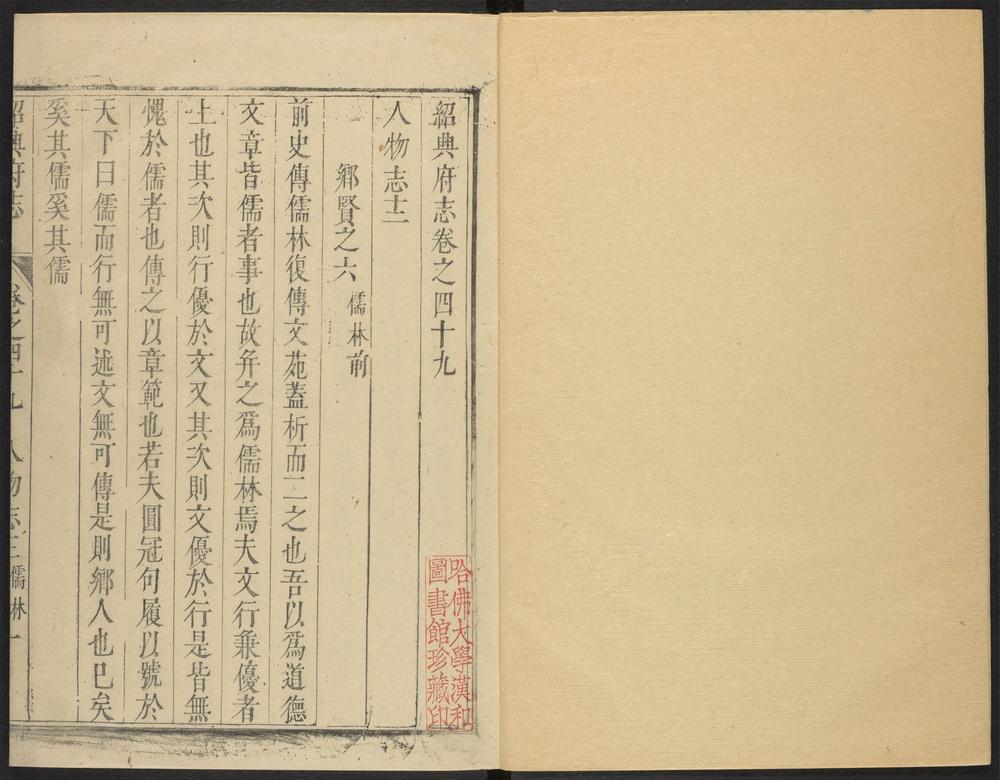 紹興府志卷之四十九
人物志十二
鄉賢之六 儒林前
前史傳儒林復傳文苑蓋析而二之也吾以爲道德
文章皆儒者事也故弁之爲儒林焉夫文行兼優者
上也其次則行優於文又其次則文優於行是皆無
愧於儒者也傳之以章範也若夫圓冠句履以號於
天下曰儒而行無可述文無可傳是則鄉人也已矣
奚其儒奚其儒
紹興府志 卷之四十九 人物志十二 儒林 一
哈佛大學漢和
圖書館珍藏印